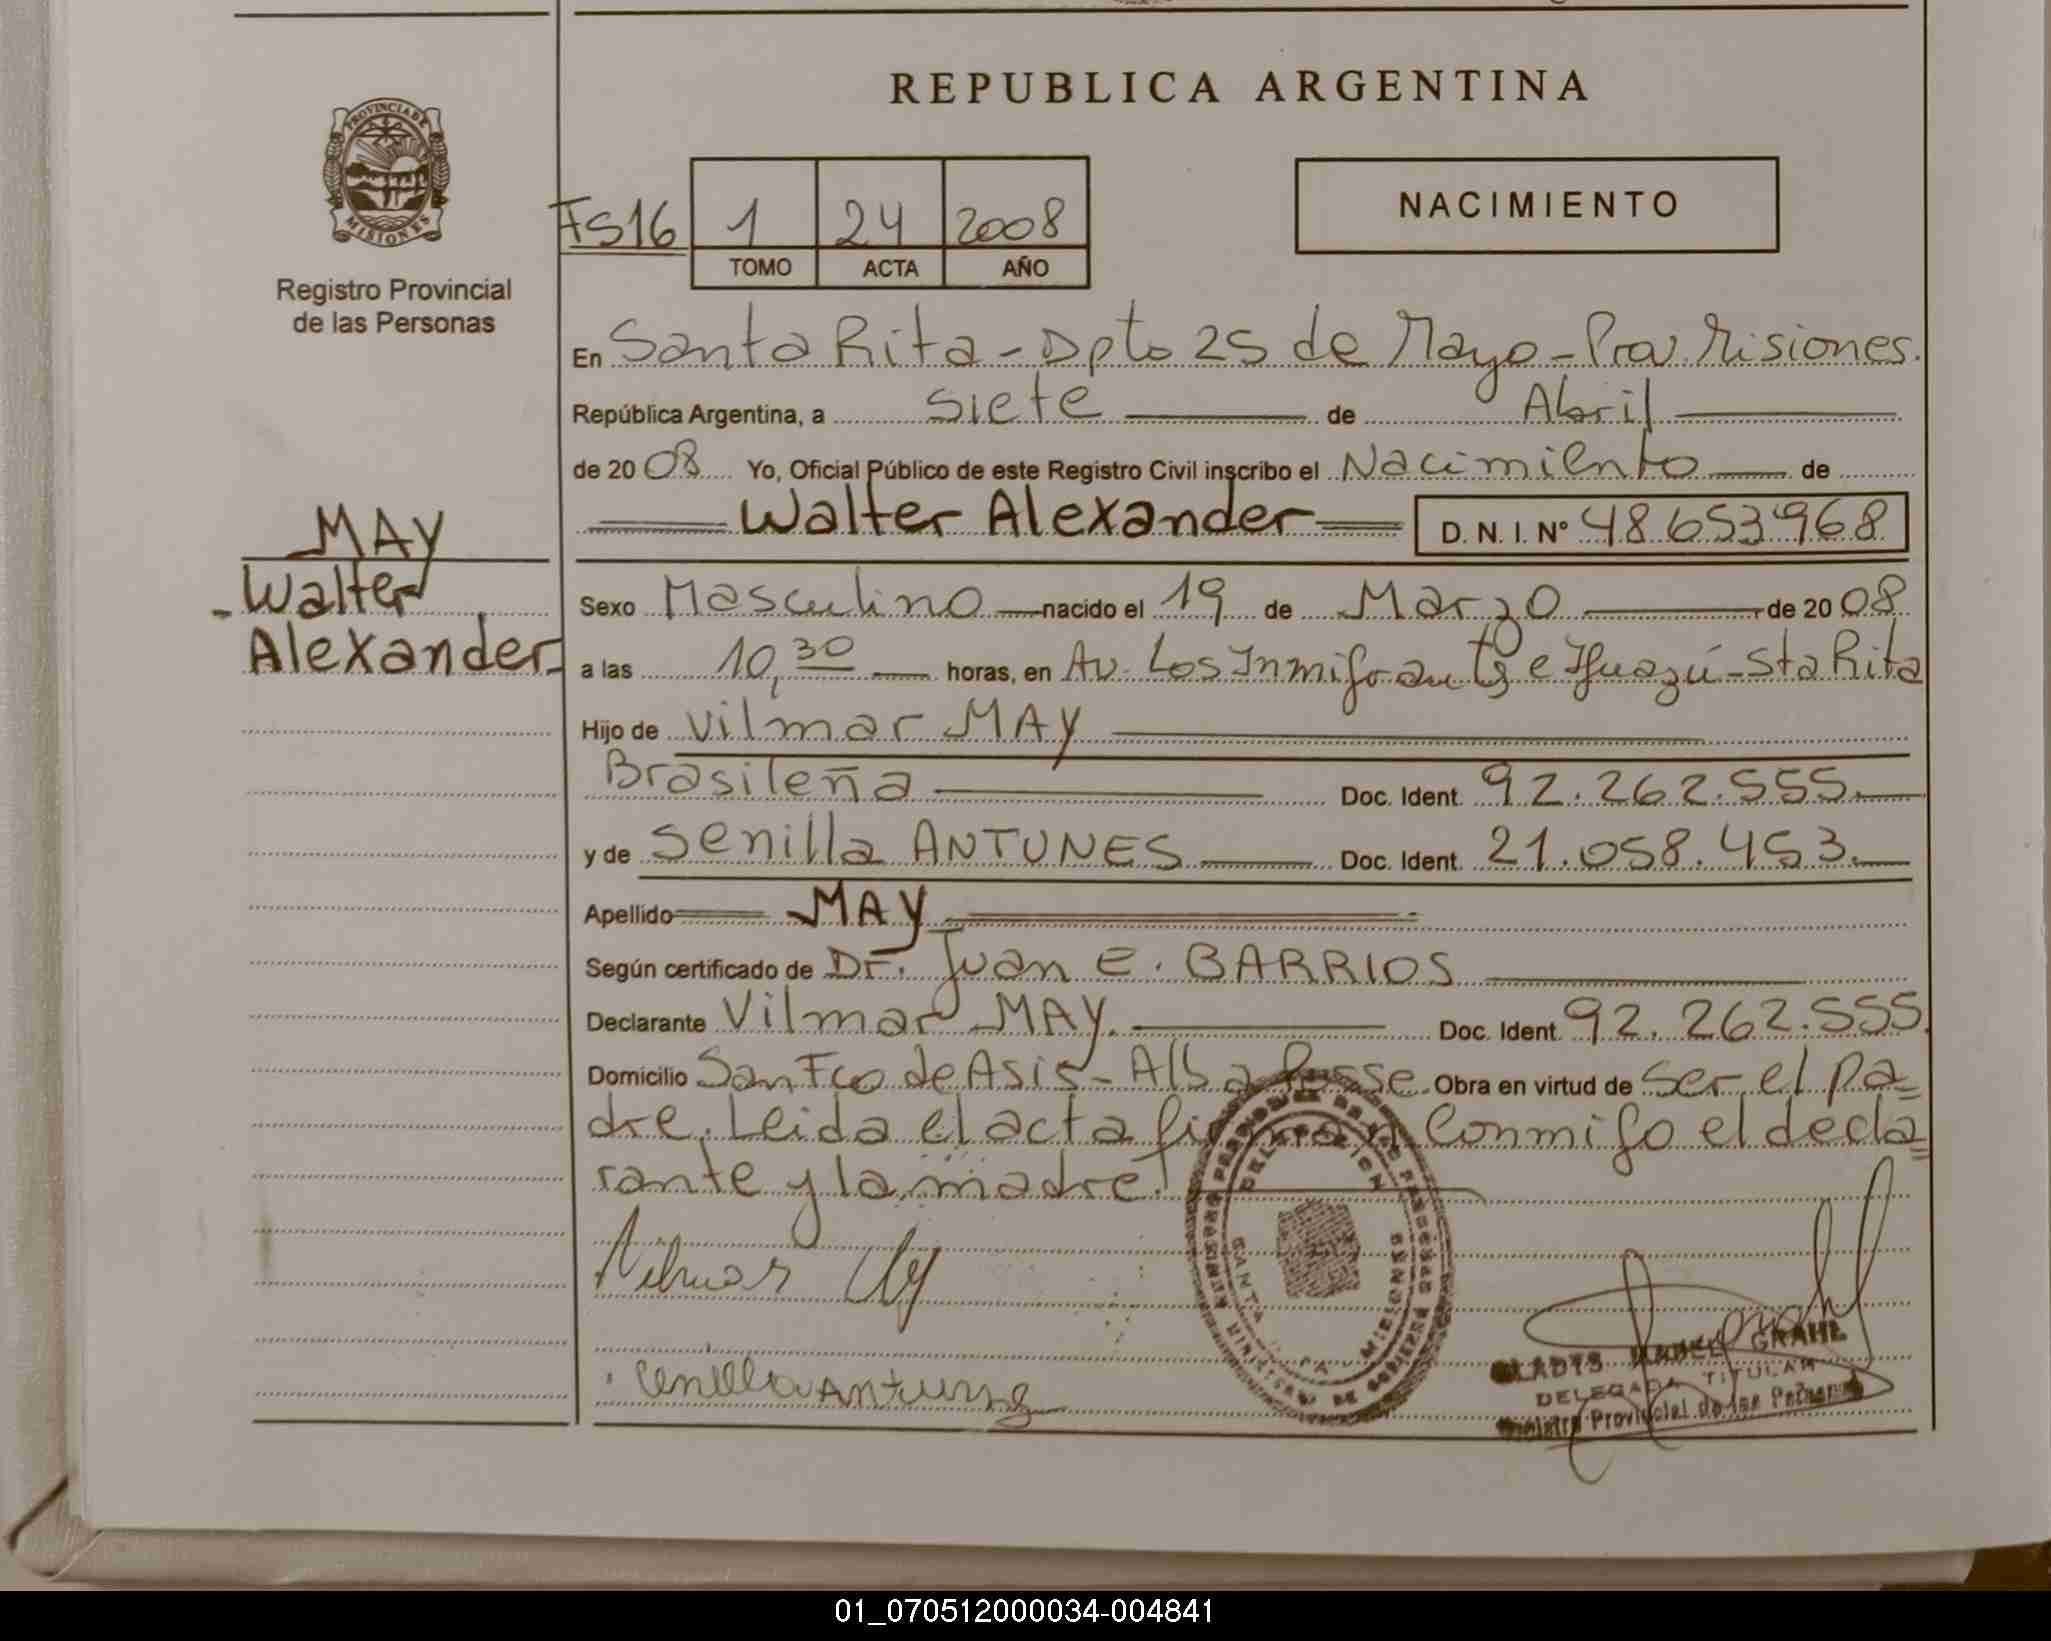 REPUBLICA ARGENTINA
PROVINCIA DE
MISIONES
Registro Provincial
de las Personas
FS16
1 24 2008
TOMO ACTA AÑO
NACIMIENTO
En Santa Rita - Dpto 25 de Mayo - Prov. Misiones.
República Argentina, a Siete de Abril
de 2008 Yo, Oficial Público de este Registro Civil inscribo el Nacimiento de
Walter Alexander D. N. I. Nº 48653968
MAY
Walter
Alexander
Sexo Masculino nacido el 19 de Marzo de 2008
a las 10,30 horas, en Av. Los Inmigrantes e Iguazú - Sta Rita
Hijo de Vilmar MAY
Brasileña Doc. Ident. 92.262.555.
y de Senilla ANTUNES Doc. Ident. 21.058.453.
Apellido MAY
Según certificado de Dr. Juan E. BARRIOS
Declarante Vilmar MAY. Doc. Ident. 92.262.555.
Domicilio San Fco de Asis - Alba Posse Obra en virtud de Ser el pa=
dre. Leida el acta firman Conmigo el decla=
rante y la madre.
Vilmar May
Cenilla Antunes
SANTA RITA MISIONES
GLADYS MABEL GRAHL
DELEGADA TITULAR
Registro Provincial de las Personas
01_070512000034-004841